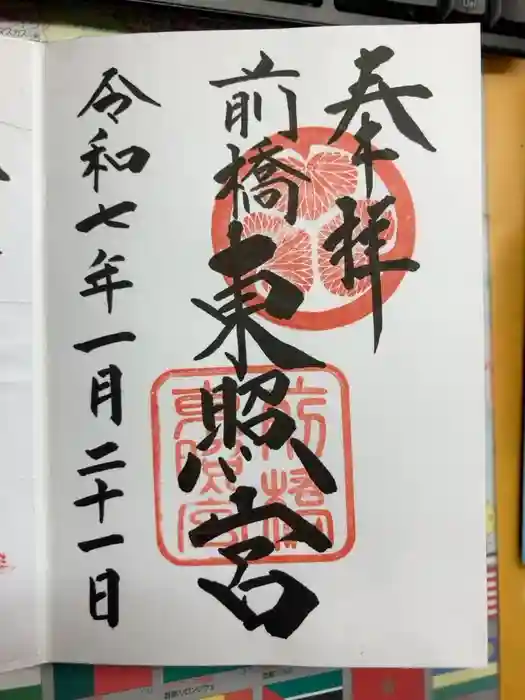 奉拝
前橋東照宮
令和七年一月二十一日
前橋
東照宮